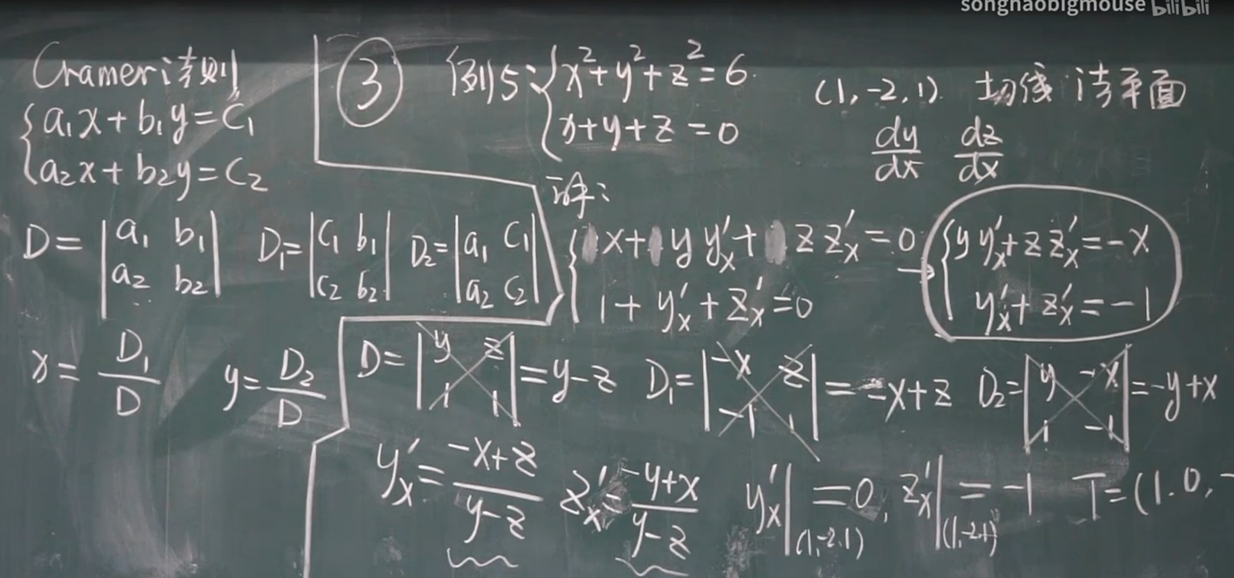 songhaobigmouse bilibili
Cramer法则
{a₁x+b₁y=C₁
{a₂x+b₂y=C₂
D=|a₁ b₁|
|a₂ b₂|
D₁=|C₁ b₁|
|C₂ b₂|
D₂=|a₁ C₁|
|a₂ C₂|
x=D₁/D y=D₂/D
③ 例5:{x²+y²+z²=6
{x+y+z=0
(1,-2,1) 切线 法平面
dy/dx dz/dx
解:
{x+yy'ₓ+zz'ₓ=0
{1+y'ₓ+z'ₓ=0
→{yy'ₓ+zz'ₓ=-x
{y'ₓ+z'ₓ=-1
D=|y z|=y-z
|1 1|
D₁=|-x z|=-x+z
|-1 1|
D₂=|y -x|=-y+x
|1 -1|
y'ₓ=(-x+z)/(y-z) z'ₓ=(-y+x)/(y-z) y'ₓ|(1,-2.1)=0, z'ₓ|(1,-2,1)=-1 T=(1.0,-